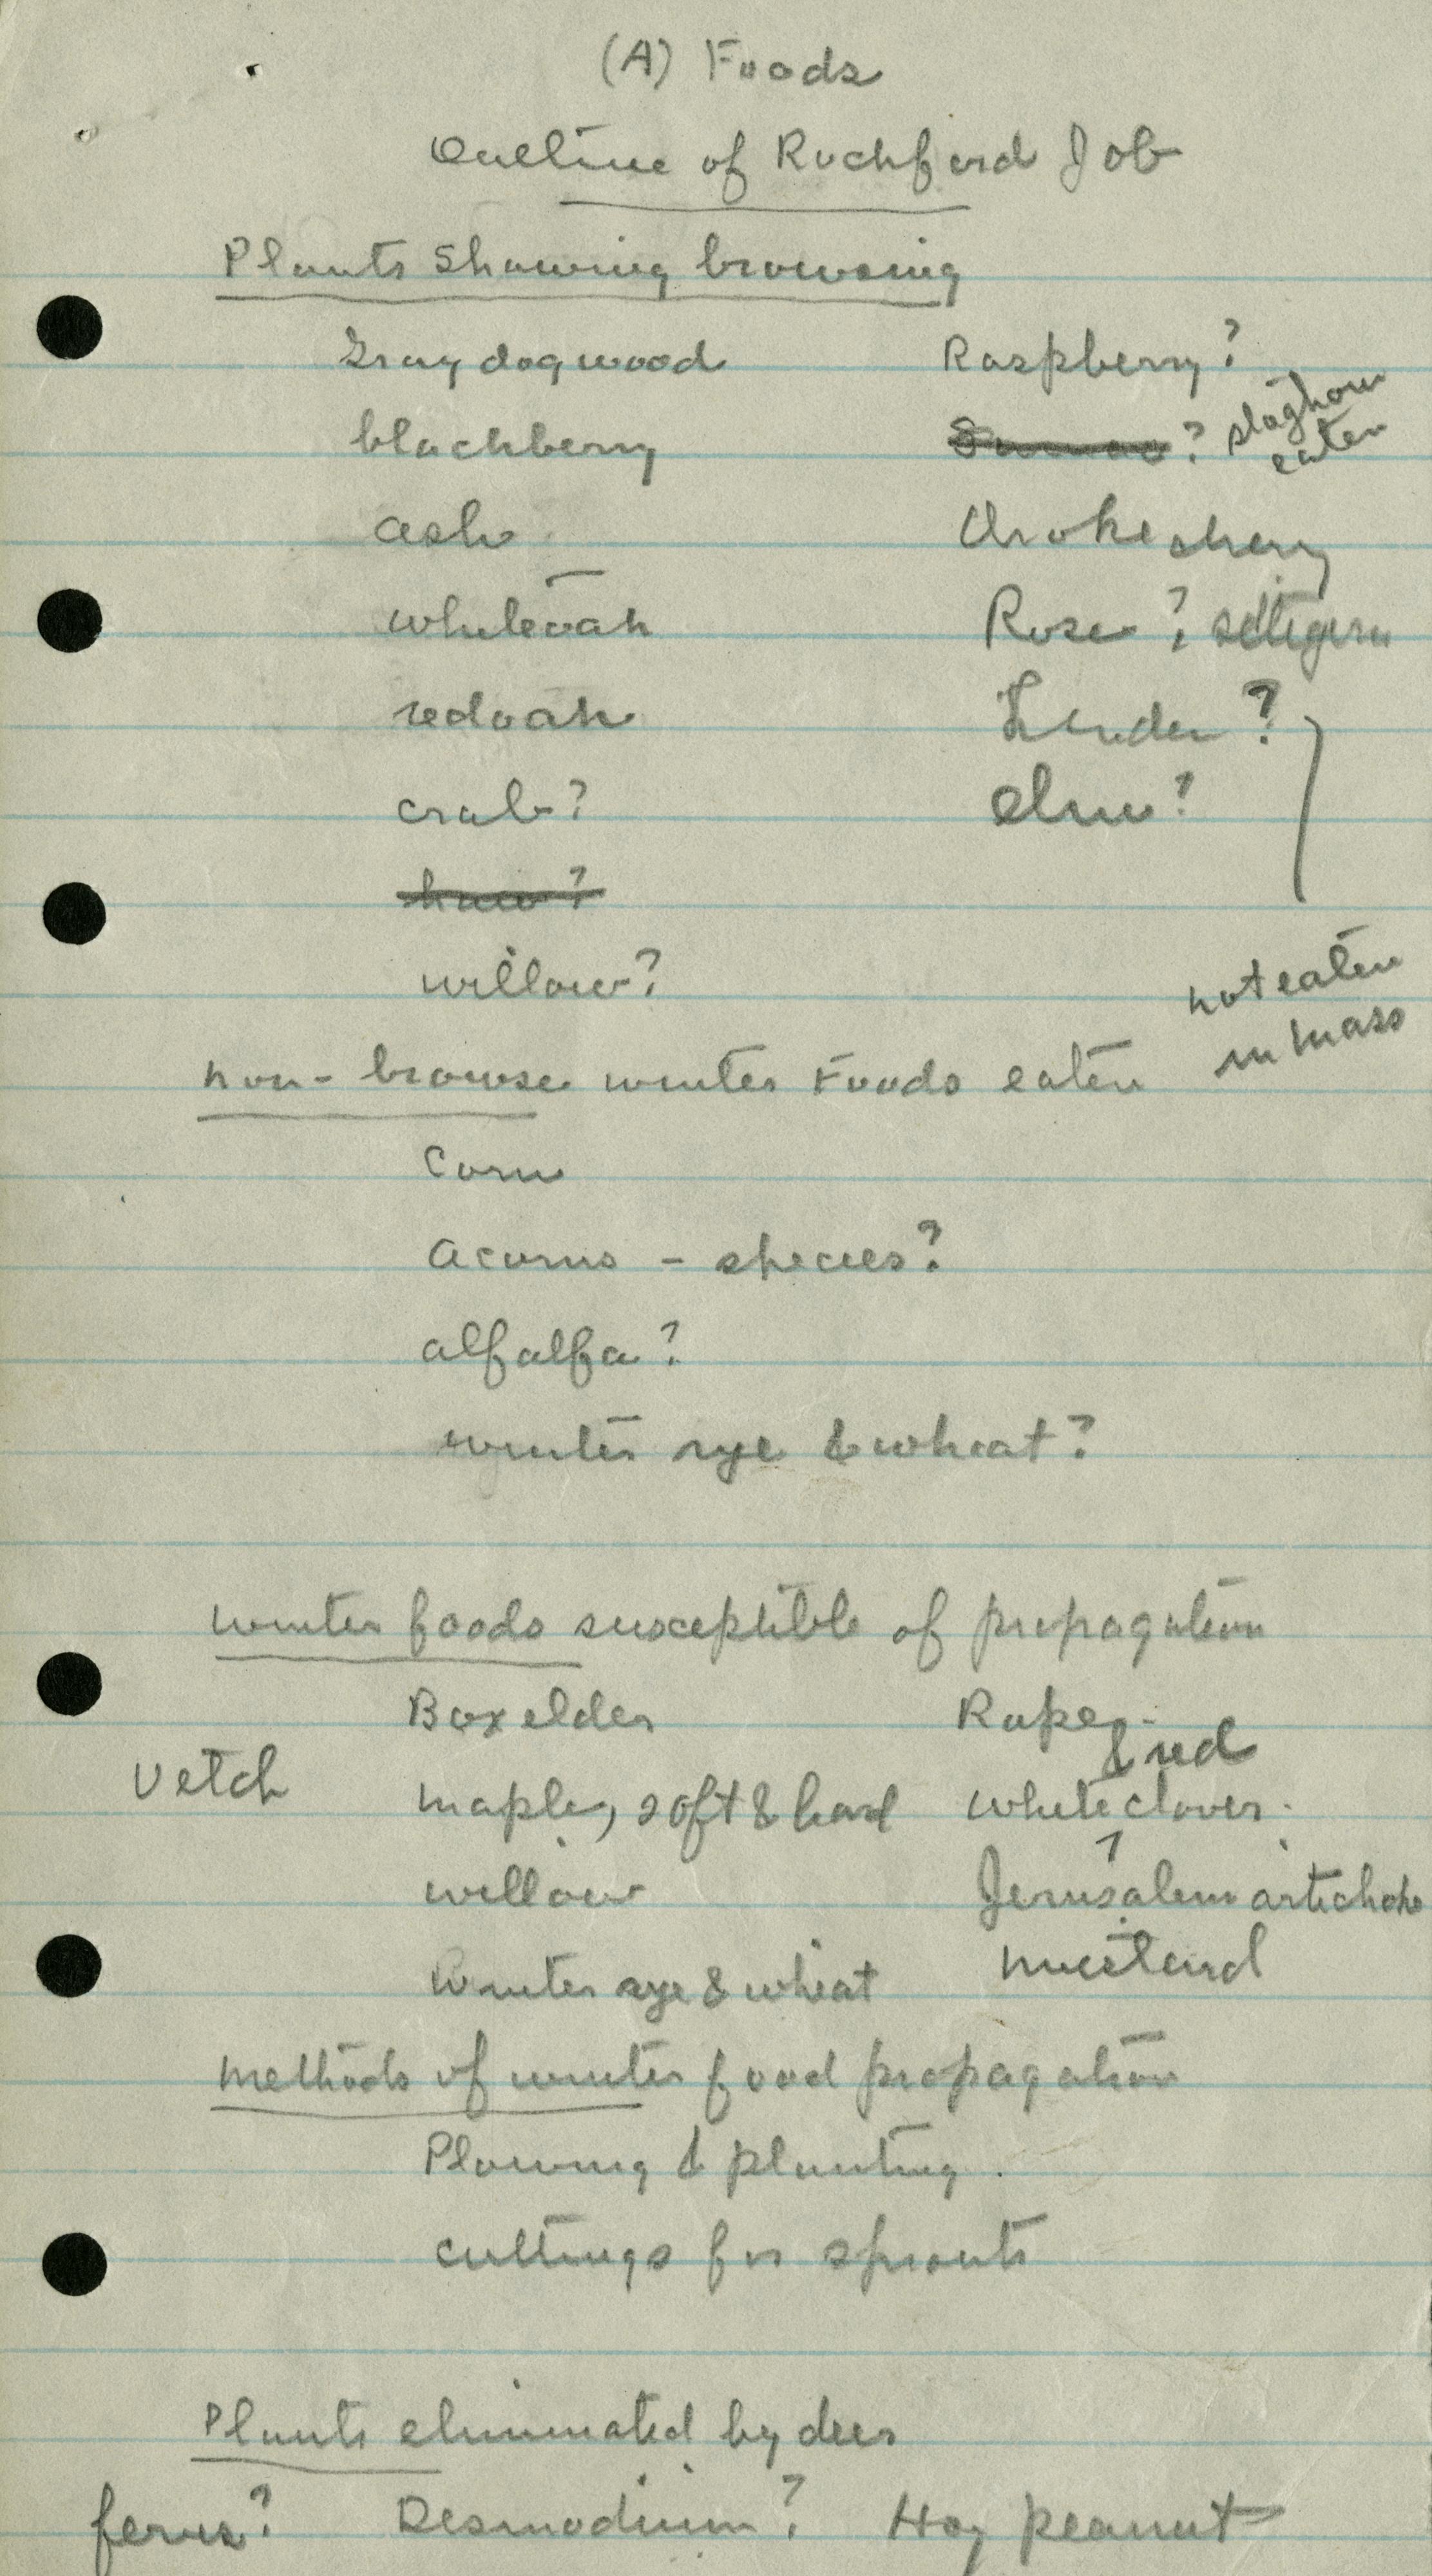 (A) Foods
Outline of Rockford Job
Plants Showing browsing
Gray dogwood
blackberry
ash
white oak
red oak
crab?
haw?
willow?
Raspberry?
Sumac? staghorn
eaten
Choke cherry
Rose? setigera
Linden?
elm?
not eaten
in mass
non-browse winter Foods eaten
Corn
Acorns - species?
alfalfa?
winter rye & wheat?
winter foods susceptible of propagation
Box elder
Vetch
maple, soft & hard
willow
Winter rye & wheat
Rape
& red
white clover
Jerusalem artichoke
mustard
methods of winter food propagation
Plowing & planting
cuttings for sprouts
Plants eliminated by deer
ferns? Desmodium? Hog peanut